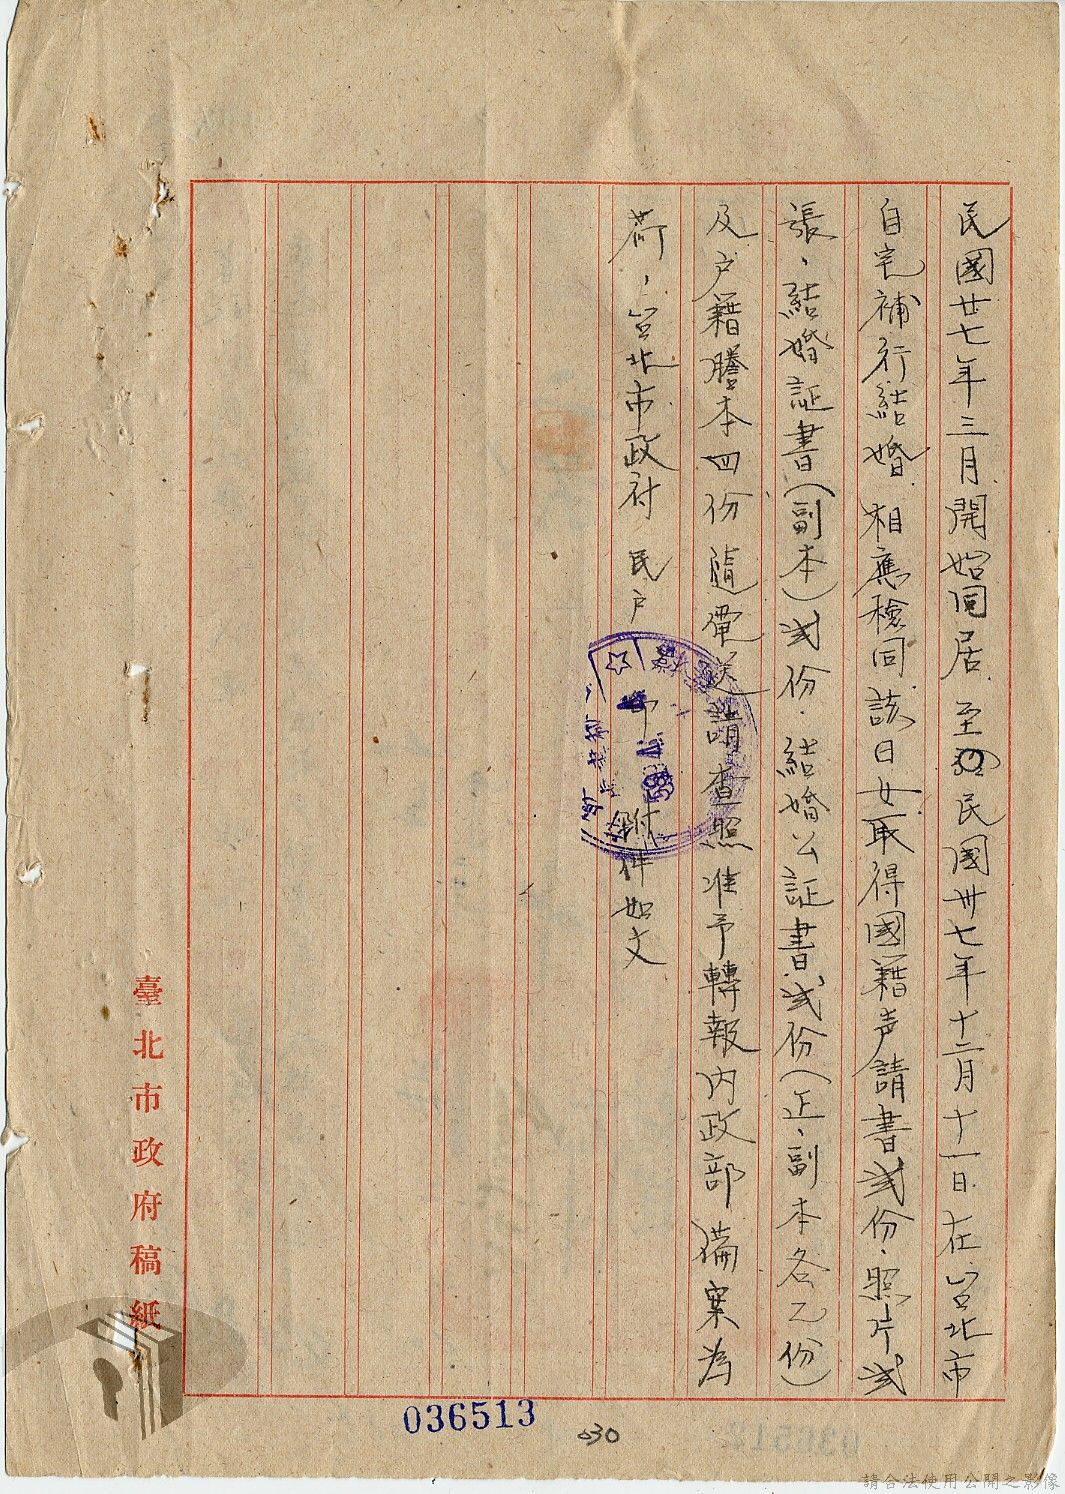 民國廿七年三月開始同居至民國卅七年十二月十一日在台北市
自宅補行結婚相應檢同該日女取得國籍声請書弍份、照片弍
張、結婚証書（副本）弍份、結婚公証書弍份（正、副本各乙份）
及户籍謄本四份隨電送請查照准予轉報內政部備案為
荷、台北市政府民户 印附件如文
59
臺北市政府稿紙
036513
030
請合法使用公開之影像